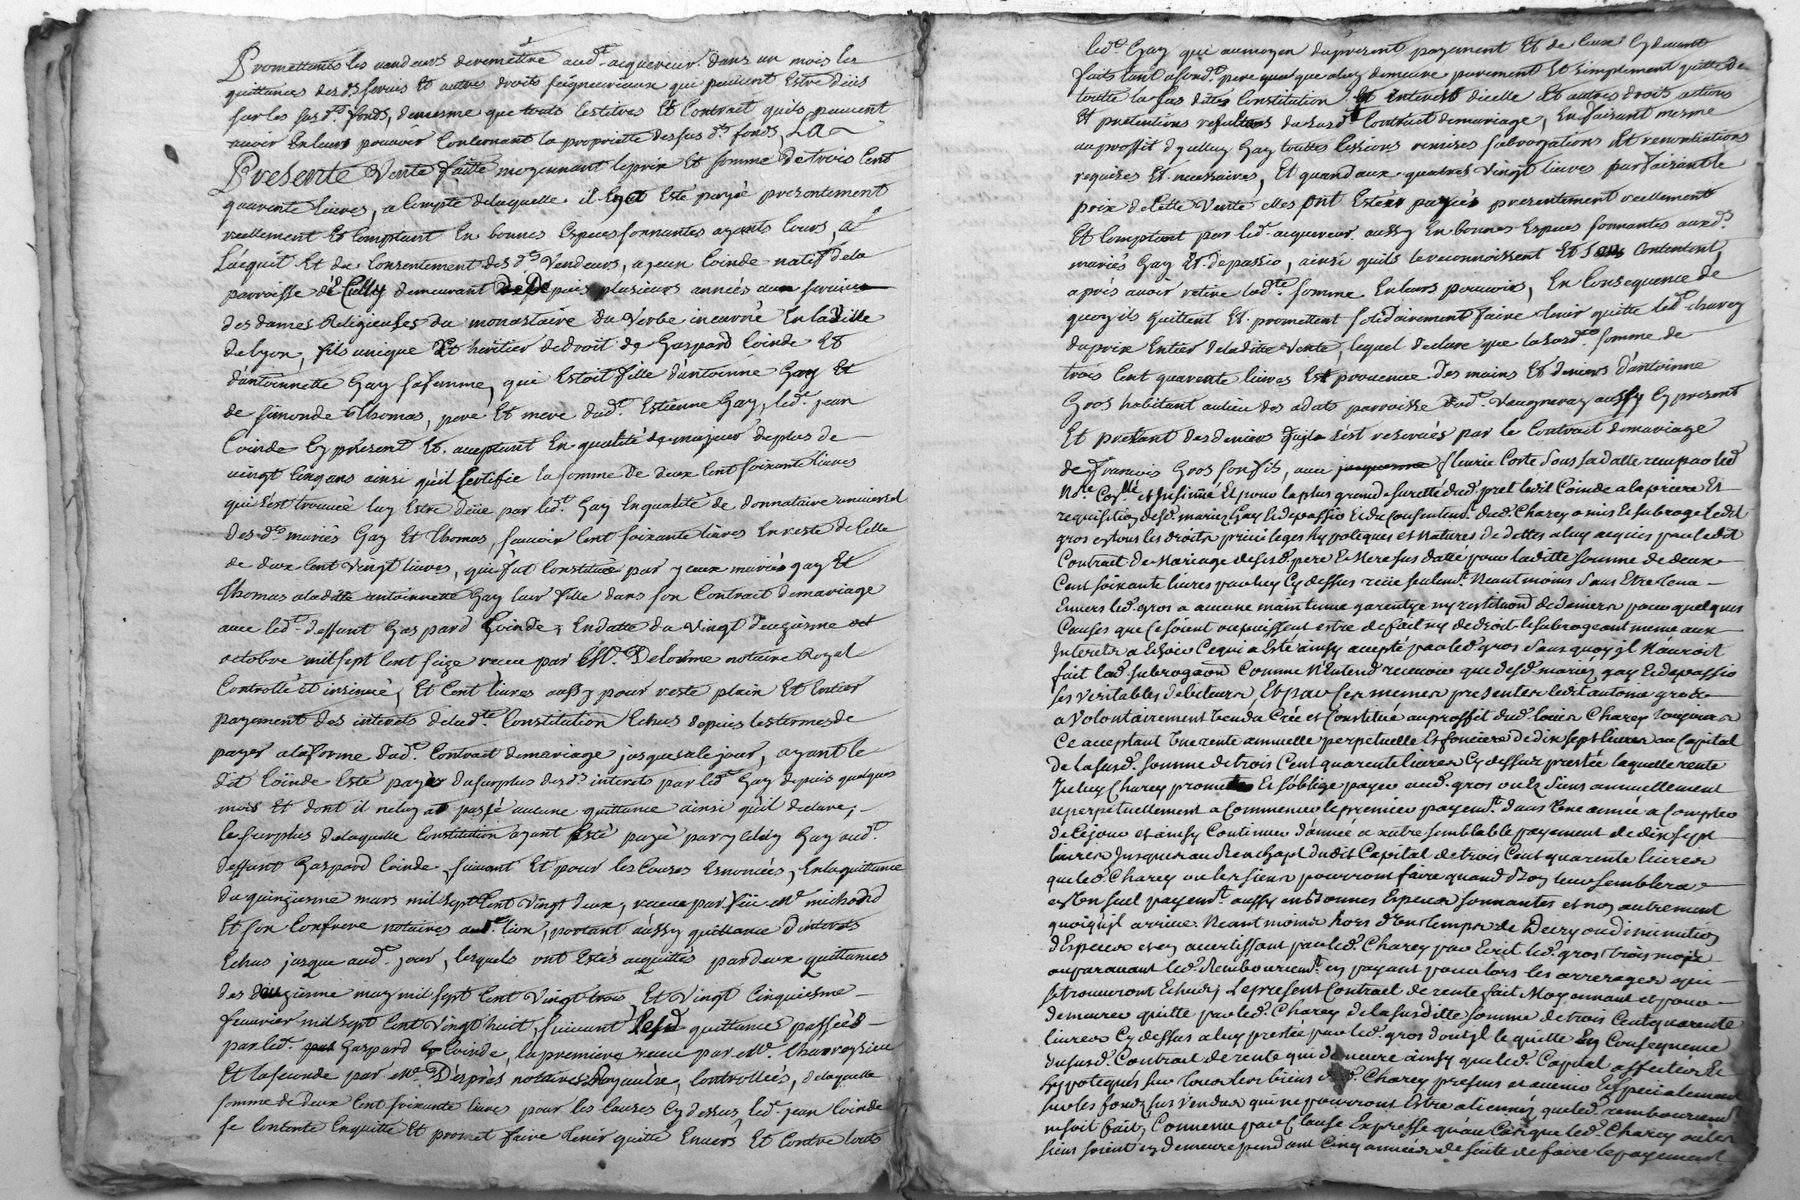 Promettants les vandeurs deremettre aud.t acquereur dans un mois les
quittances des d.s servis Et autres droits seigneuriaux qui peuvent Estre deüs
sur les sus d.ts fonds, demesme que touts les titres Et Contrait quils peuvent
avoir En leurs pouvoir Concernant la proprieté des sus d.ts fonds, La
Presente Vente faitte moyennant le prix Et somme de trois Cent
quarente livres, a Compte delaquelle il Enat Esté payé presentement
reellement Et Comptant En bonnes Especes sonnantes ayants Cours, a
L'acquit Et du Consentement des d.ts Vendeurs, a jean Coinde natif dela
parroisse de Cullÿ demeurant Depuis plusieurs années au service
des dames Religieuses du monastaire du Verbe incarné En la Ville
de Lyon, fils unique Et héritier de droit de Gaspard Coinde Et
d'antoinnette Gay sa femme, qui Estoit fille d'antoinne Gay Et
de simonde Thomas, pere Et mere dud.t Estienne Gay, led.t jean
Coinde Cy présent Et acceptant En qualité de majeur de plus de
vingt Cinq ans ainsi qu'il Certifie la somme De deux Cent soixante livres
qui s'est trouvée luy Estre deüe par led.t Gay En qualité de donnataire universel
des d.ts mariés Gay Et Thomas, sauvoir Cent soixante livres En reste de Celle
de deux Cent Vingt livres, qui fut Constituée par yceux mariés gay Et
Thomas a la ditte antoinnette Gay leur fille dans son Contrait de mariage
avec led.t deffunt Gaspard Coinde, En datte du Vingt deuzième
octobre mil sept Cent seize receu par M.e Delorme notaire Royal
Controllé et insinué, Et Cent livres aussy pour reste plain Et Entier
payement des interets de lad.te Constitution Echus depuis les termes de
payer a la forme dud.t Contrait de mariage jusqu'a le jour, ayant le
dit Coinde Esté payé du surplus des d.s interets par led.t Gay depuis quelques
mois Et dont il neluy at passé aucune quittance ainsi qu'il declare,
le surplus delaquelle Constitution ayant Esté payé par yceluy Gay aud.t
deffunt Gaspard Coinde, suivant Et pour les Causes Enoncées, En la quittance
du quinzieme mars mil sept Cent Vingt deux, receue par feu M.e michodid
Et son Confrere notaires aud.t lion, portant aussy quittance d'interets
Echus jusque aud.t jour, lesquels ont Estés acquittés par deux quittances
des douzieme may mil sept Cent Vingt trois Et Vingt Cinquiesme
feuvrier mil sept Cent Vingt huit, suivant les d. quittances passées
par led.t Gaspard Coinde, la premiere receue par M.e
Et la seconde par M.e Déprés notaires Royaulx, Controllées, delaquelle
somme de deux Cent soixante livres pour les Causes Cy dessus led.t jean Coinde
se Contente Enquitte Et promet faire tenir quitte Envers Et Contre touts
led.t Gay qui au moyen du present payement Et de Ceux Cy devant
faits tant a son d.t pere que luy demeure purement Et simplement quitte de
toutte la sus ditte Constitution Et interets dicelle Et autres droits actions
Et pretentions du susd.t Contract de mariage, En faisant mesme
au proffit d'ycelluy Gay touttes Cessions remises subrogations Et renontiations
requises Et necessaires, Et quand aux quatres Vingt livres parfaisant le
prix de Cette Vente elles ont Estées payées presentement reellement
Et Comptant par led.t acquereur aussy En bonnes Especes sonnantes auxd.
mariés Gay Et depassio, ainsi quils le reconnoissent Et s'en Contentent,
après avoir retiré lad.te somme En leurs pouvoirs, En Consequence de
quoy ils quittent Et promettent solidairement faire tenir quitte led.t Charey
du prix Entier de la ditte Vente, lequel declare que la susd.te somme de
trois Cent quarente livres Est provenue des mains Et deniers d'antoinne
Gros habitant au lieu des adats parroisse dud.t Vaugneray aussy Cy present
Et prestant des deniers quyla s'est reservés par le Contrait de mariage
de francois Gros son fils, avec fleurie Corte sous sa datte receu par led.
No.re Con.llé et Insinué Et pour la plus grande surette dud. pret ledit Coinde a la priere Et
requisition desd. mariez Gay Et depassio Et du consentem.t dud. Charey a mis Et subrogé ledit
gros en tous les droits privileges hypoteques et natures de dettes a luy acquis par ledit
Contrait de Mariage desesd. pere Et Mere sus datté pour la ditte somme de deux
Cent soixante livres par luy Cy dessus reçüe seulem.t Neant moins sans Etre tenu
Envers led. gros a aucune maintenue garentye ny restitution de deniers pour quelques
Causes que Ce soient ou puissent estre de fait ny de droit le subrogeant meme aux
Interets a Echoir Ce qui a Eté ainsy accepté par led. gros sans quoy il N'auroit
fait lad. subrogaon Comme N'Entend recevoir que desd. mariez gay Et depassio
ses veritables debiteurs, Et par Ces memes presentes ledit antoine gros
a Volontairement Vendu Créé et Constitué au proffit dud. Charey
Ce acceptant Une rente annuelle perpetuelle Et fonciere de dix sept livres au Capital
de la susd. somme de trois Cent quarente livres Cy dessus prestée laquelle rente
Iceluy Charey promet Et s'oblige payer aud. gros ou Es siens annuellement
et perpetuellement a Commencer le premier payem.t dans Une année a Compter
de Cejour et ainsy Continuer d'année a autre semblable payement de dix sept
livres Jusques au Rachapt dudit Capital de trois Cent quarente livres
que led. Charey ou les siens pourront faire quand bon leur semblera
en Un seul payem.t aussy en bonnes Especes sonnantes et non autrement
quoiqu'il arrive Neant moins hors d'Un temps de Decry ou diminution
d'Especes et en avertissant par led. Charey par Ecrit led. gros trois mois
auparavant led. Remboursem.t en payant pour lors les arrerages qui
se trouveront Echus, Le present Contrait de rente fait Moyennant et pour
demeurer quitte par led. Charey de la susditte somme de trois Cent quarente
livres Cy dessus a luy prestée par led. gros dont Il le quitte En Consequence
du susd. Contrait de rente qui demeure ainsy que led. Capital affectés Et
hypotequés sur tous les biens dud. Charey presens et avenir Et specialement
sur les fonds sus Vendus qui ne pourront Estre alienez que led. remboursem.t
ne soit fait, Convenu par Clause Expresse qu'au Cas que led. Charey ou les
siens soient en demeure pendant Cinq années de suite de faire le payement